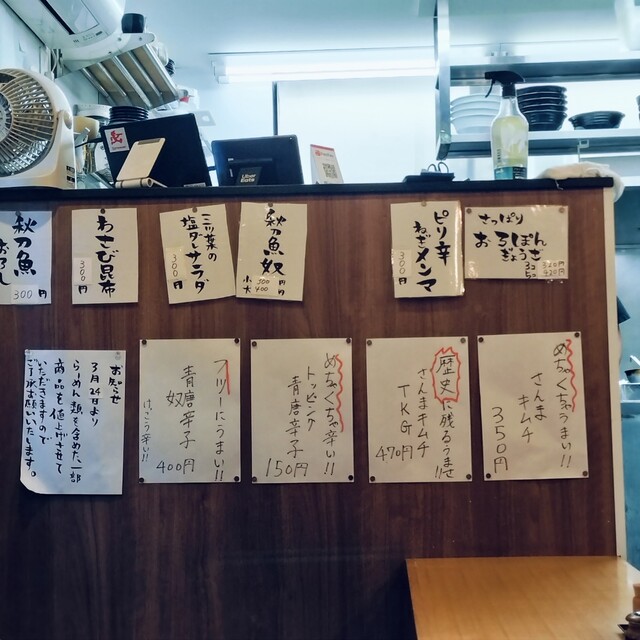 さっぱり
おろぽん
ぎょうさ
3コ 320円
5コ 420円
ピリ辛
ねぎメンマ
300円
秋刀魚奴
小 300円
大 400円
三ツ葉の
塩ダレサラダ
300円
わさび昆布
300円
秋刀魚
おろし
300円
めちゃくちゃうまい!!
さんま
キムチ
350円
歴史に残るうまさ!!
さんまキムチ
TKG
470円
めちゃくちゃ辛い!!
トッピング
青唐辛子
150円
フツーにうまい!!
青唐辛子
奴
400円
けっこう辛い!!
お知らせ
3月24日より
らーめん類を含めた一部
商品を値上げさせて
いただきますので
ご了承お願いいたします。
Uber
Eats